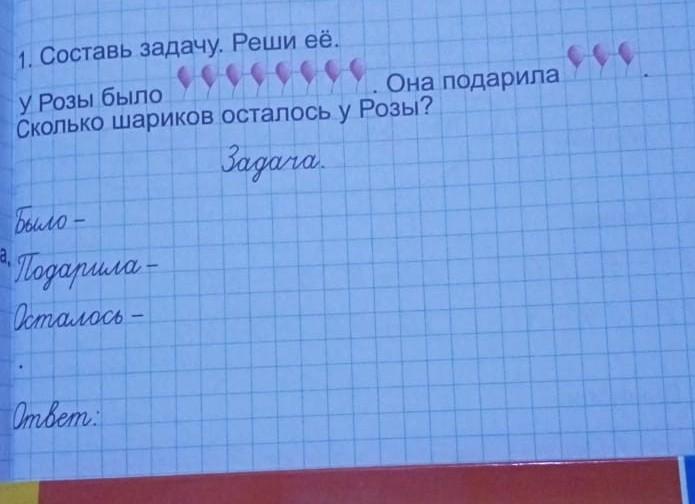 1. Составь задачу. Реши её.
У Розы было . Она подарила .
Сколько шариков осталось у Розы?
Задача.
Было –
а,
Подарила –
Осталось –
.
Ответ: